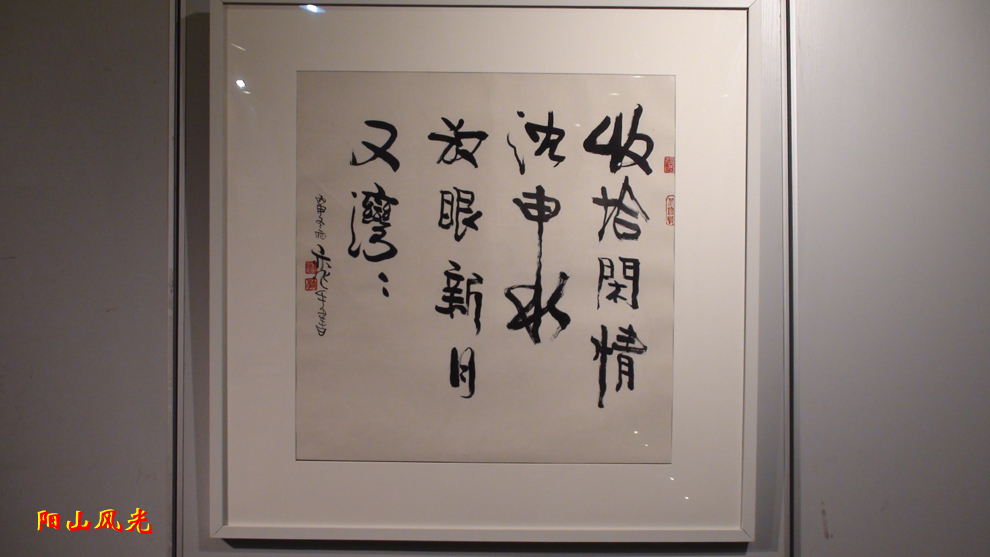 收拾閑情
沈申水
放眼新月
又灣：
阳山风光